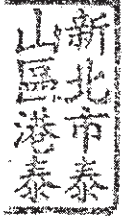 新北市泰
山區港泰